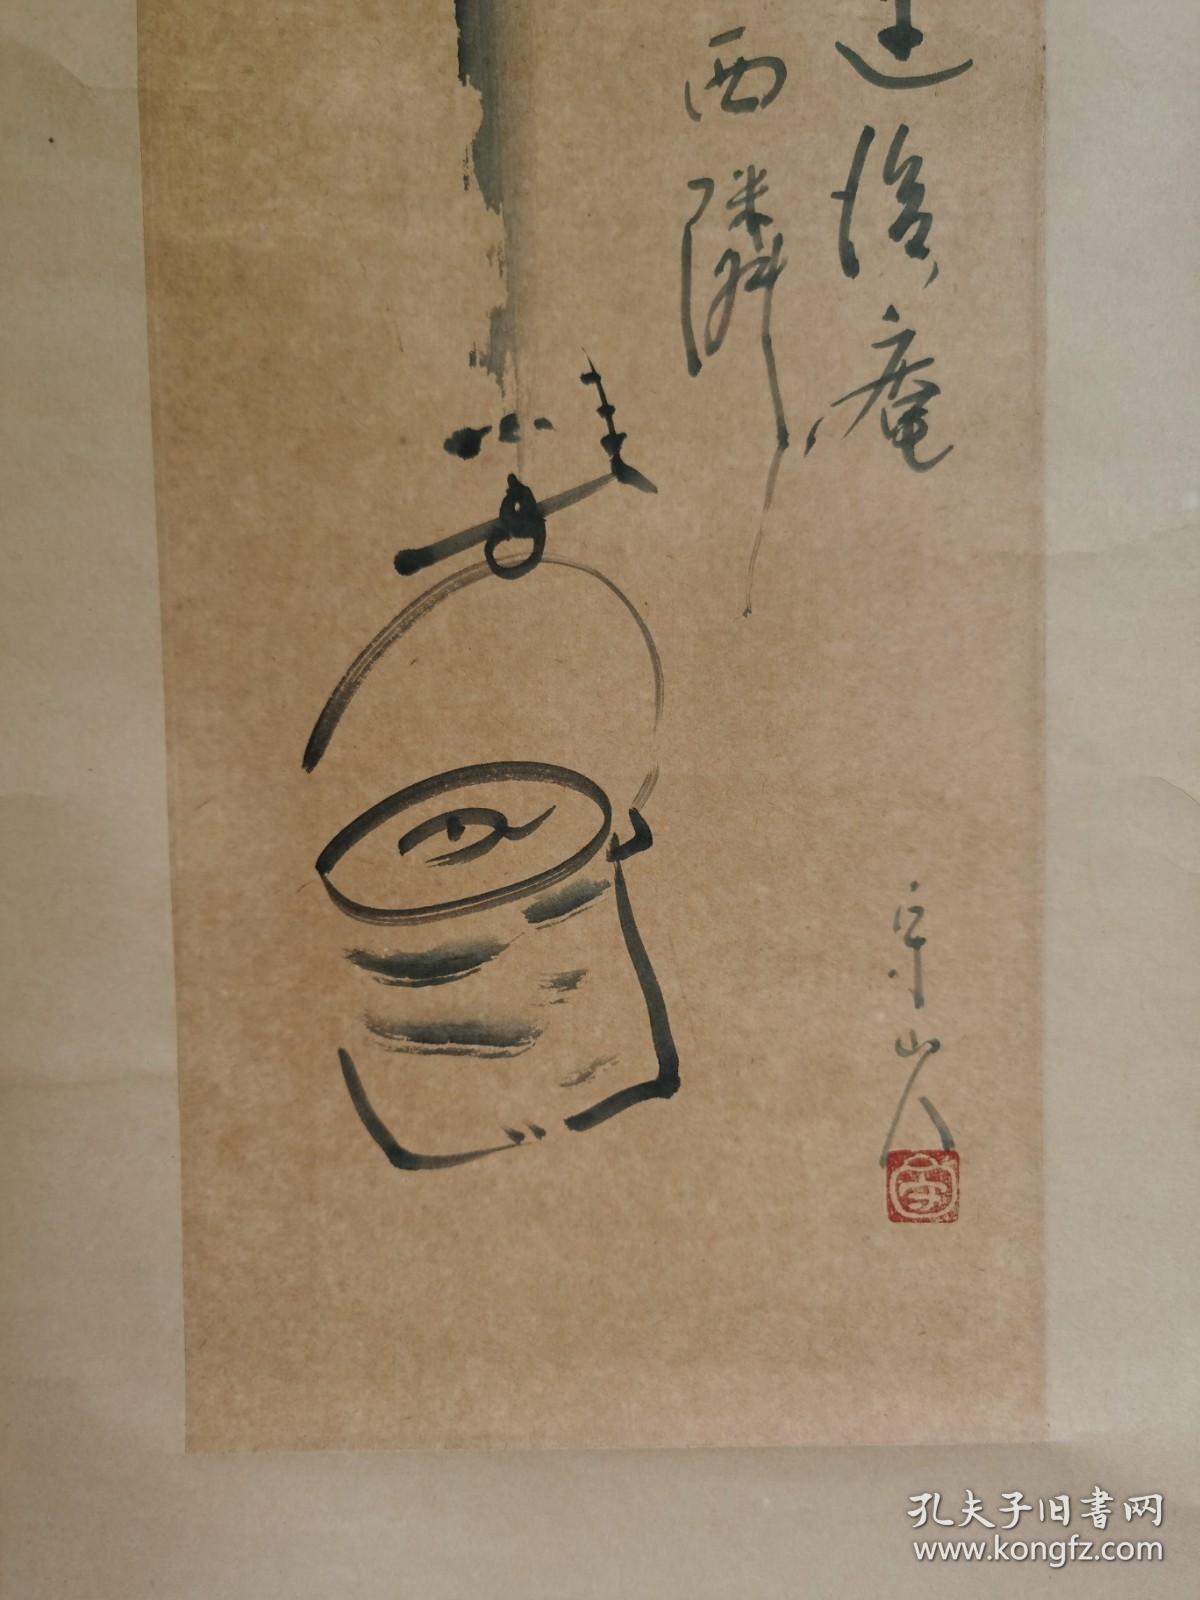 後庵
西隣
守山人
孔夫子旧书网
www.kongfz.com